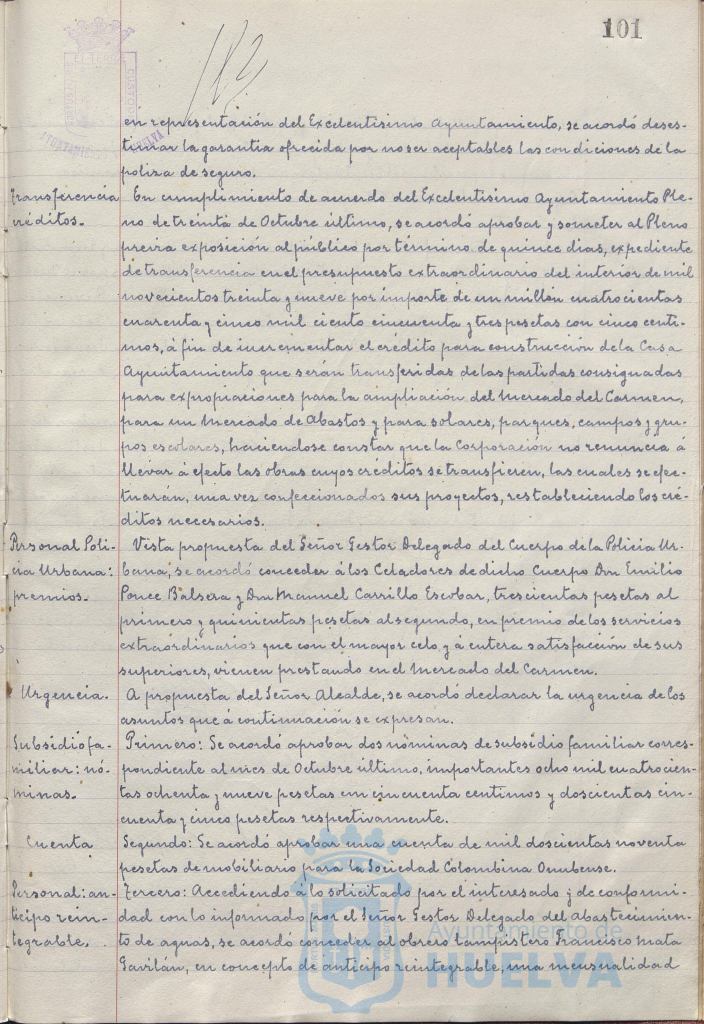 101
182
en representación del Excelentisimo Ayuntamiento, se acordó deses-
timar la garantia ofrecida por no ser aceptables las condiciones de la
poliza de seguro.
Transferencia
créditos.
En cumplimiento de acuerdo del Excelentisimo Ayuntamiento Ple-
no de treinta de Octubre último, se acordó aprobar y someter al Pleno
previa exposición al público por término de quince dias, expediente
de transferencia en el presupuesto extraordinario del interior de mil
novecientos treinta y nueve por importe de un millón cuatrocientas
cuarenta y cinco mil ciento cincuenta y tres pesetas con cinco centi-
mos, á fin de incrementar el crédito para construcción de la Casa
Ayuntamiento que serán transferidas de las partidas consignadas
para expropiaciones para la ampliación del Mercado del Carmen,
para un Mercado de Abastos y para solares, parques, campos y gru-
pos escolares, haciendose constar que la Corporación no renuncia á
llevar á efecto las obras cuyos créditos se transfieren, las cuales se efec-
tuarán, una vez confeccionados sus proyectos, restableciendo los cré-
ditos necesarios.
Personal Poli-
cia Urbana:
premios.
Vista propuesta del Señor Gestor Delegado del Cuerpo de la Policia Ur-
bana, se acordó conceder á los Celadores de dicho Cuerpo Don Emilio
Ponce Balsera y Don Manuel Carrillo Escobar, trescientas pesetas al
primero y quinientas pesetas al segundo, en premio de los servicios
extraordinarios que con el mayor celo y á entera satisfacción de sus
superiores, vienen prestando en el Mercado del Carmen.
Urgencia.
A propuesta del Señor Alcalde, se acordó declarar la urgencia de los
asuntos que á continuación se expresan.
Subsidio fa-
miliar: nó-
minas.
Primero: Se acordó aprobar dos nóminas de subsidio familiar corres-
pondiente al mes de Octubre último, importantes ocho mil cuatrocien-
tas ochenta y nueve pesetas con cincuenta centimos y doscientas cin-
cuenta y cinco pesetas respectivamente.
Cuenta
Segundo: Se acordó aprobar una cuenta de mil doscientas noventa
pesetas de mobiliario para la Sociedad Colombina Onubense.
Personal: an-
ticipo rein-
tegrable.
Tercero: Accediendo á lo solicitado por el interesado y de conformi-
dad con lo informado por el Señor Gestor Delegado del Abastecimien-
to de aguas, se acordó conceder al obrero lampistero Francisco Mata
Gavilán, en concepto de anticipo reintegrable, una mensualidad
Ayuntamiento de
HUELVA